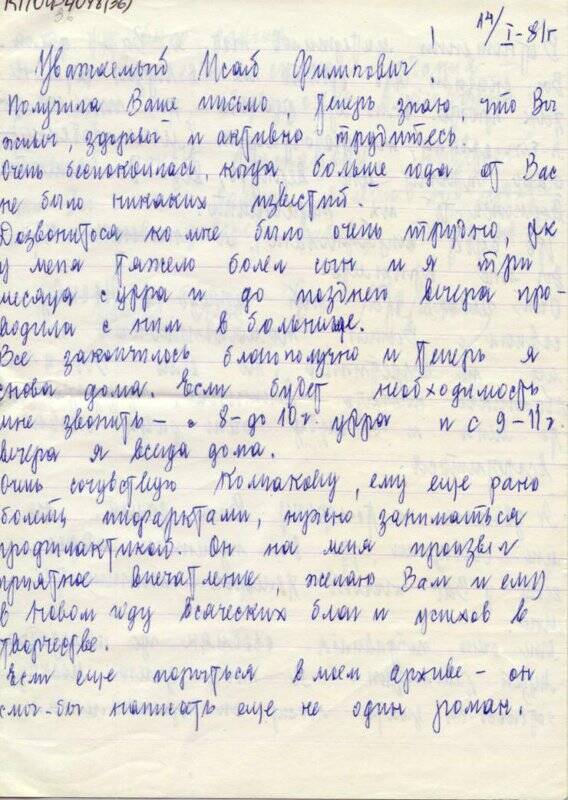 14/I-81г
Уважаемый Исай Филиппович!
Получила Ваше письмо, теперь знаю, что Вы
живы, здоровы и активно трудитесь.
Очень беспокоилась, когда больше года от Вас
не было никаких известий.
Дозвониться ко мне было очень трудно, тк
у меня тяжело болел сын и я три
месяца с утра и до позднего вечера про-
водила с ним в больнице.
Все закончилось благополучно и теперь я
снова дома. Если будет необходимость
мне звонить – с 8-до 10 г. утра и с 9-11 г.
вечера я всегда дома.
Очень сочувствую Колпакову, ему еще рано
болеть инфарктами, нужно заниматься
профилактикой. Он на меня произвел
приятное впечатление, желаю Вам и ему
в Новом году всяческих благ и успехов в
творчестве.
Если еще порыться в моем архиве – он
смог-бы написать еще не один роман.